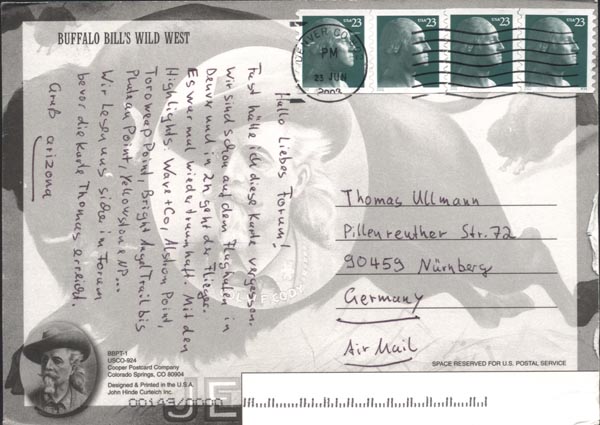 BUFFALO BILL'S WILD WEST
USA 23
USA 23
USA 23
USA 23
DENVER CO
PM
23 JUN
2003
Hallo Liebes Forum!
Fast hätte ich diese Karte vergessen.
Wir sind schon auf dem Flughafen in
Denver und in 2h geht der Flieger.
Es war mal wieder traumhaft. Mit den
Highlights: Wave + Co, Alstrom Point,
Toroweap Point, Bright Angel Trail bis
Plateau Point, Yellowstone NP...
Wir lesen uns sicher im Forum
bevor die Karte Thomas erreicht.
Gruß arizona
Thomas Ullmann
Pillenreuther Str. 72
90459 Nürnberg
Germany
Air Mail
BBPT-1
USCO-924
Cooper Postcard Company
Colorado Springs, CO 80904
Designed & Printed in the U.S.A.
John Hinde Curteich Inc.
SPACE RESERVED FOR U.S. POSTAL SERVICE
00143/0000
JE